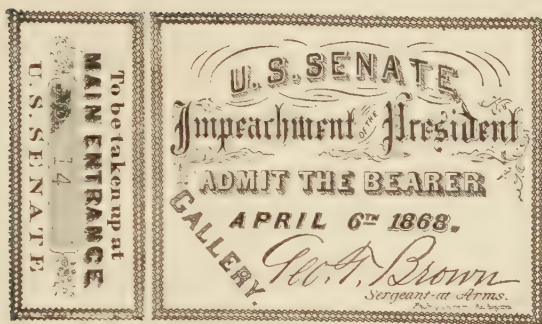 To be taken up at
MAIN ENTRANCE
14
U.S. SENATE
U.S. SENATE
Impeachment OF THE President
ADMIT THE BEARER
APRIL 6TH 1868.
GALLERY.
Geo. T. Brown
Sergeant-at Arms.